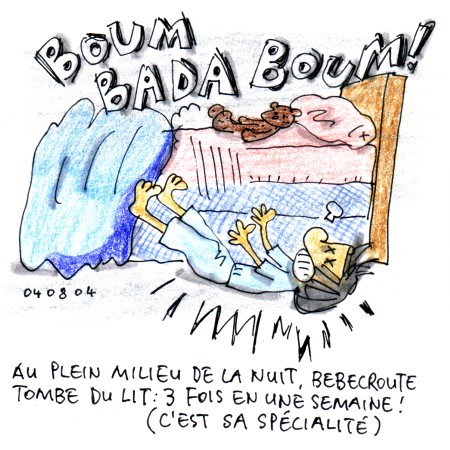 BOUM
BADA BOUM!
040804
AU PLEIN MILIEU DE LA NUIT, BEBECROUTE
TOMBE DU LIT: 3 FOIS EN UNE SEMAINE!
(C'EST SA SPÉCIALITÉ)